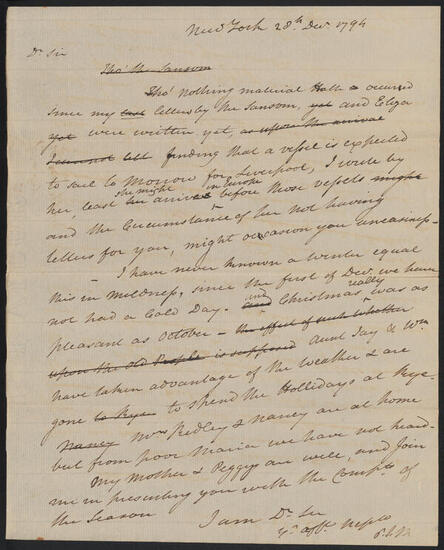 New York 28th Decr 1794
Dr Sir
Tho' the Sansom
Tho' nothing material Hath occurred
since my last letters by the Sansom, yet and Eliza
yet were written yet, as upon the arrival
finding that a vessel is expected
to sail to Morrow for Liverpool, I write by
her, least she might her arrive in Europe before those vessels might
and the Circumstance of her not having
letters for you, might occasion you uneasiness-
I have never known a winter equal
this in mildness, since the first of Decr we have
not had a Cold Day. and and Christmas really was as
pleasant as October - the effect of such Weather
upon the old People is supposed Aunt Jay & Wm
have taken advantage of the Weather & are
gone to Rye to spend the Hollidays at Rye-
Nancy Mrs Ridley & Nancy are at home
but from poor Maria we have not heard-
My Mother & Peggy are well, and Join
me in presenting you with the Compts of
the Season
I am Dr Sir
yr afft Nephw
P. A. M